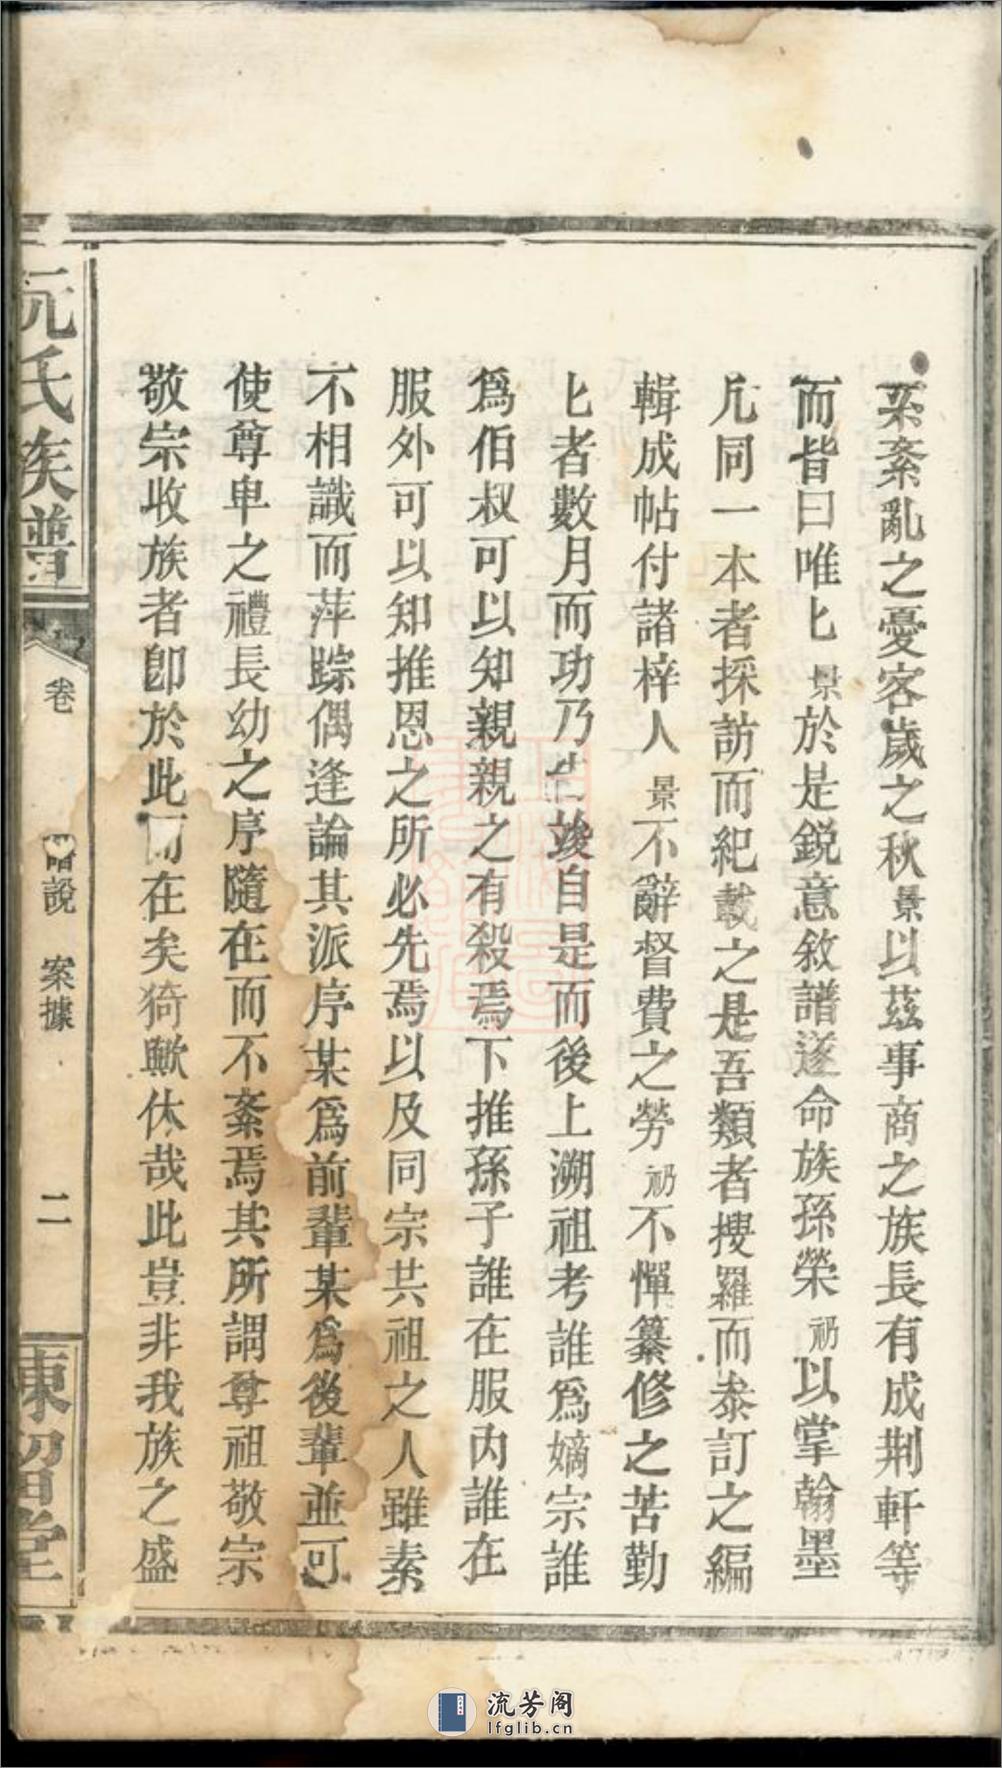 系紊亂之憂客歲之秋景以茲事商之族長有成荆軒等
而皆曰唯匕景於是鋭意敘譜遂命族孫榮礽以掌翰墨
凡同一本者採訪而紀載之是吾類者搜羅而泰訂之編
輯成帖付諸梓人景不辭督費之勞礽不憚纂修之苦勤
匕者數月而功乃告竣自是而後上溯祖考誰爲嫡宗誰
爲伯叔可以知親親之有殺焉下推孫子誰在服內誰在
服外可以知推恩之所必先焉以及同宗共祖之人雖素
不相識而萍踪偶逢論其派序某爲前輩某爲後輩並可
使尊卑之禮長幼之序隨在而不紊焉其所謂尊祖敬宗
敬宗收族者卽於此而在矣猗歟休哉此豈非我族之盛
阮氏族譜
卷
譜說 案據
二
東智堂
流芳阁
lfglib.cn